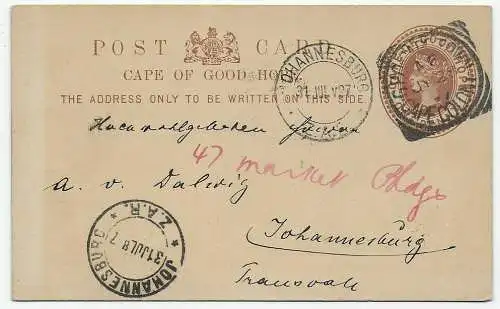 POST CARD
CAPE OF GOOD HOPE
THE ADDRESS ONLY TO BE WRITTEN ON THIS SIDE.
JOHANNESBURG
31 JUL 97
Hochwohlgeboren
47 market Bldgs
a. v. Dalwig
Johannesburg
Transvaal
JOHANNESBURG
31 JUL 97
Z.A.R.